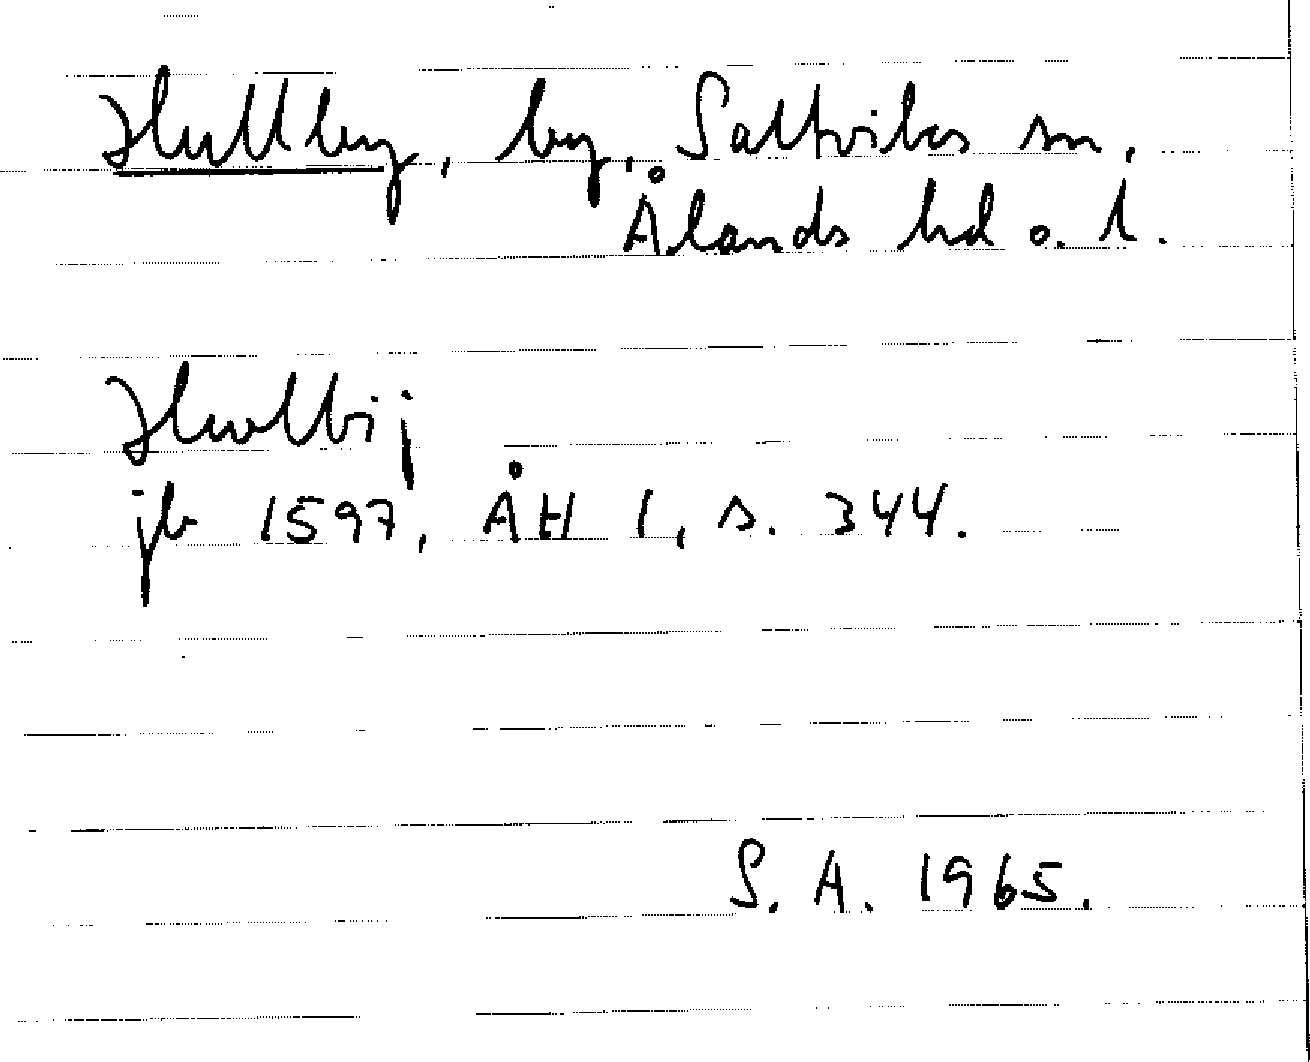 Hullby, by, Saltviks sn,
Ålands hd o. l.
Hwlbij
jb 1597, ÅH 1, s. 344.
S. A. 1965.